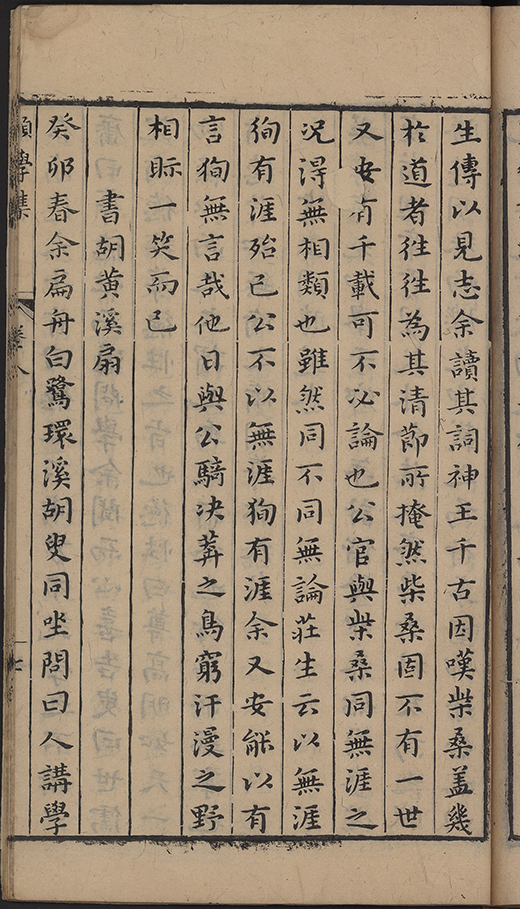 生傳以見志余讀其詞神王千古因嘆柴桑盖幾
於道者往往為其清節所掩然柴桑固不有一世
又安有千載可不必論也公官與柴桑同無涯之
況淂無相類也雖然同不同無論莊生云以無涯
狥有涯殆已公不以無涯狥有涯余又安能以有
言狥無言哉他日與公騎决莾之鳥窮汗漫之野
相眎一笑而已
書胡黄溪扇
癸夘春余扁舟白鷺環溪胡叟同坐問曰人講學
願學集
卷八
七